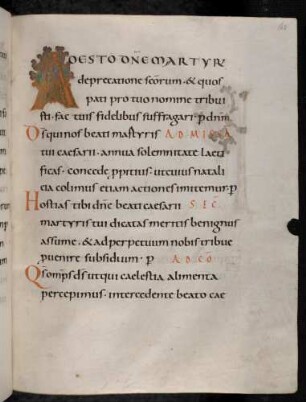 ADESTO DNE MARTYR
deprecatione scorum · & quos
pati pro tuo nomine tribui
sti · fac tuis fidelibus suffragari · p dnm
Ds qui nos beati martyris AD MISSA
tui caesarii · annua solemnitate laeti
ficas · concede ppitius · ut cuius natali
cia colimus etiam actiones imitemur · p
Hostias tibi dne beati caesarii SEC
martyris tui dicatas meritis benignus
assume · & ad perpetuum nobis tribue
puenire subsidium · p AD CO
Qs omps ds ut qui caelestia alimenta
percepimus · intercedente beato cae